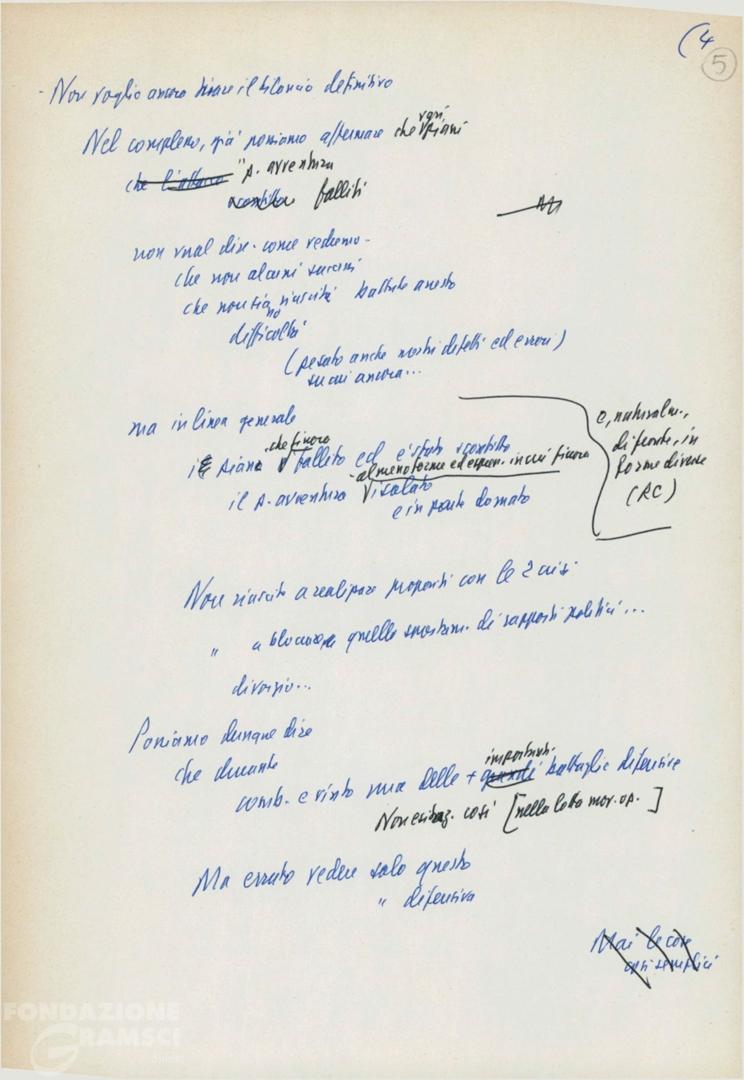 (4
5
- Non voglio ancora tirare il bilancio definitivo
Nel complesso, già possiamo affermare che vari piani
che l'attacco " p. avventura
sconfitto falliti
non vual dire - come vedremo -
che non alcuni successi
che non sia riuscito battuto questo
no difficoltà
(pesato anche nostri difetti ed errori)
su cui ancora...
ma in linea generale
il piano che finora fallito ed è stato sconfitto
- almeno forme ed espress. in cui finora
il p. avventura isolato
e in parte domato
e, naturalm.,
di fronte, in
forme diverse
(RC)
Non riuscito a realizzare propositi con le 2 crisi
" a bloccare quello spostam. di rapporti politici...
divorzio...
Possiamo dunque dire
che durante
comb. e vinto una delle + grandi importanti battaglie difensive
Non esitaz. così [nella lotta mov. op.]
Ma errato vedere solo questo
" difensiva
Mai le cose
così semplici
FONDAZIONE
GRAMSCI